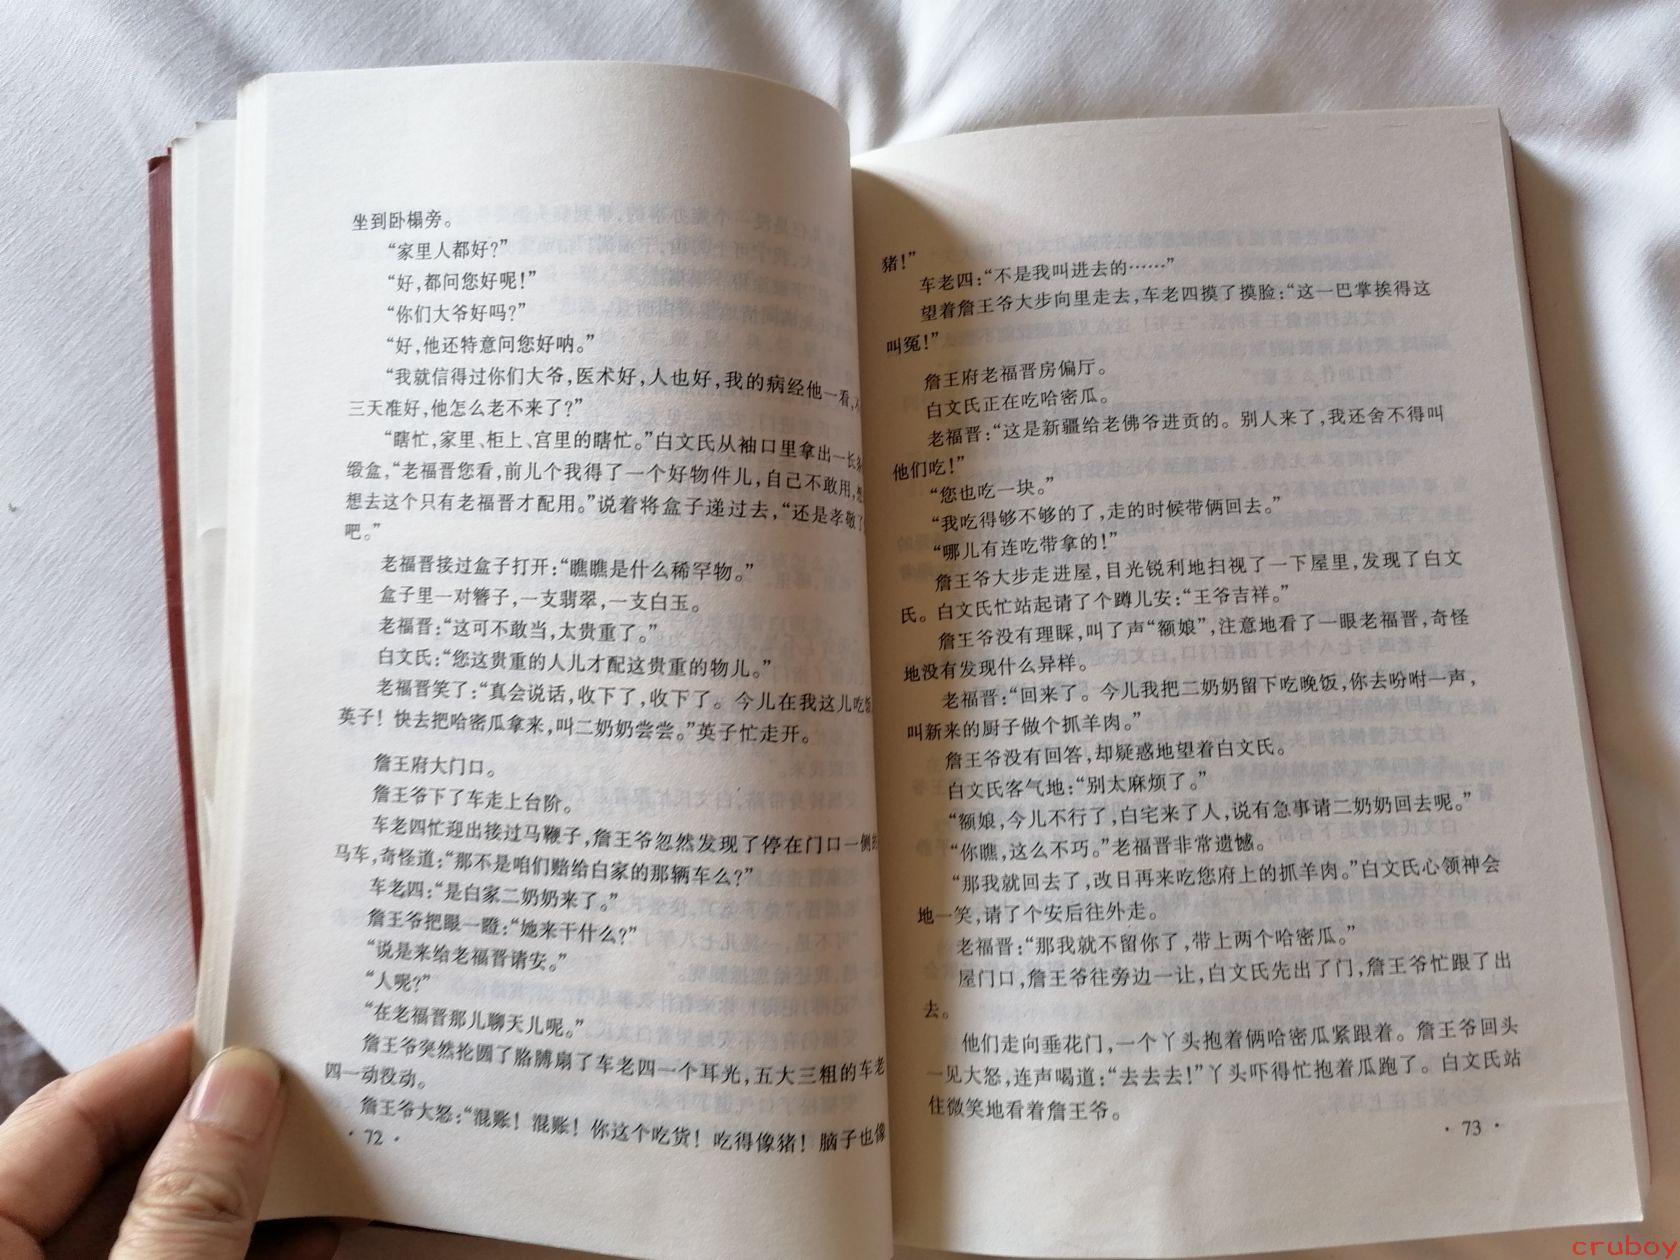 坐到卧榻旁。
“家里人都好?”
“好,都问您好呢!”
“你们大爷好吗?”
“好,他还特意问您好呐。”
“我就信得过你们大爷,医术好,人也好,我的病经他一看,
三天准好,他怎么老不来了?”
“瞎忙,家里、柜上、宫里的瞎忙。”白文氏从袖口里拿出一长条
缎盒,“老福晋您看,前儿个我得了一个好物件儿,自己不敢用,
想去这个只有老福晋才配用。”说着将盒子递过去,“还是孝敬了
吧。”
老福晋接过盒子打开:“瞧瞧是什么稀罕物。”
盒子里一对簪子,一支翡翠,一支白玉。
老福晋:“这可不敢当,太贵重了。”
白文氏:“您这贵重的人儿才配这贵重的物儿。”
老福晋笑了:“真会说话,收下了,收下了。今儿在我这儿吃饭,
英子!快去把哈密瓜拿来,叫二奶奶尝尝。”英子忙走开。
詹王府大门口。
詹王爷下了车走上台阶。
车老四忙迎出接过马鞭子,詹王爷忽然发现了停在门口一侧
马车,奇怪道:“那不是咱们赔给白家的那辆车么?”
车老四:“是白家二奶奶来了。”
詹王爷把眼一瞪:“她来干什么?”
“说是来给老福晋请安。”
“人呢?”
“在老福晋那儿聊天儿呢。”
詹王爷突然抡圆了胳膊扇了车老四一个耳光,五大三粗的车老
四一动没动。
詹王爷大怒:“混账!混账!你这个吃货!吃得像猪!脑子也像
·72·
猪!”
车老四:“不是我叫进去的……”
望着詹王爷大步向里走去,车老四摸了摸脸:“这一巴掌挨得这
叫冤!”
詹王府老福晋房偏厅。
白文氏正在吃哈密瓜。
老福晋:“这是新疆给老佛爷进贡的。别人来了,我还舍不得叫
他们吃!”
“您也吃一块。”
“我吃得够不够的了,走的时候带俩回去。”
“哪儿有连吃带拿的!”
詹王爷大步走进屋,目光锐利地扫视了一下屋里,发现了白文
氏。白文氏忙站起请了个蹲儿安:“王爷吉祥。”
詹王爷没有理睬,叫了声“额娘”,注意地看了一眼老福晋,奇怪
地没有发现什么异样。
老福晋:“回来了。今儿我把二奶奶留下吃晚饭,你去吩咐一声,
叫新来的厨子做个抓羊肉。”
詹王爷没有回答,却疑惑地望着白文氏。
白文氏客气地:“别太麻烦了。”
“额娘,今儿不行了,白宅来了人,说有急事请二奶奶回去呢。”
“你瞧,这么不巧。”老福晋非常遗憾。
“那我就回去了,改日再来吃您府上的抓羊肉。”白文氏心领神会
地一笑,请了个安后往外走。
老福晋:“那我就不留你了,带上两个哈密瓜。”
屋门口,詹王爷往旁边一让,白文氏先出了门,詹王爷忙跟了出
去。
他们走向垂花门,一个丫头抱着俩哈密瓜紧跟着。詹王爷回头
一见大怒,连声喝道:“去去去!”丫头吓得忙抱着瓜跑了。白文氏站
住微笑地看着詹王爷。
·73·
cruboy